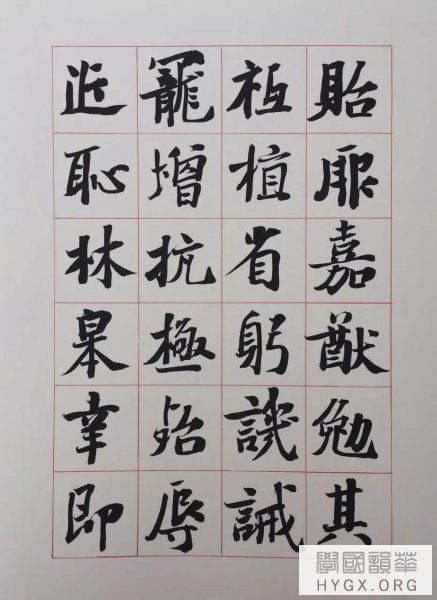 貽厥嘉猷勉其
祗植省躬譏誡
寵增抗極殆辱
近恥林皋幸即
華韻國學
HYGX.ORG